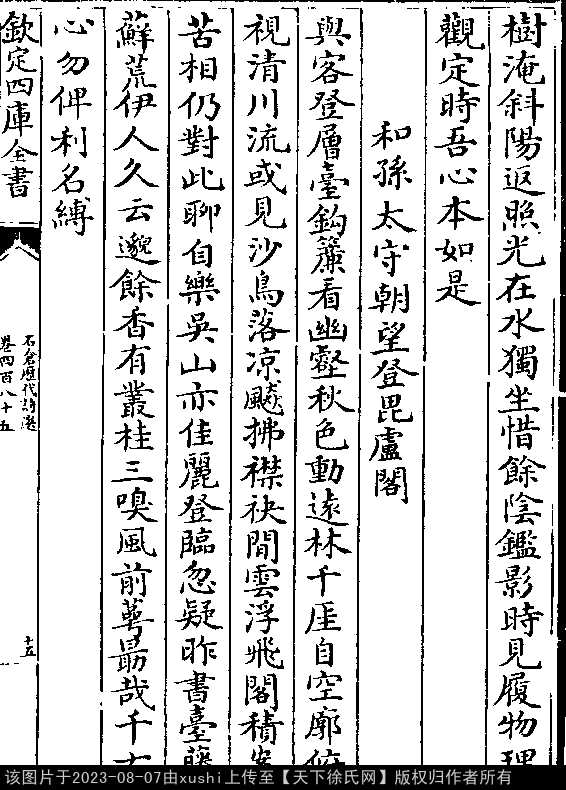 樹淹斜陽返照光在水獨坐惜餘陰鑑影時見履物理
觀定時吾心本如是
和孫太守朝望登毘盧閣
與客登層臺鈎簾看幽壑秋色動遠林千厓自空廓俯
視清川流或見沙鳥落凉飈拂襟袂間雲浮飛閣積
苦相仍對此聊自樂吳山亦佳麗登臨忽疑昨書臺
蘚荒伊人久云邈餘香有叢桂三嗅風前蕚最哉千
心勿俾利名縛
欽定四庫全書
石倉歷代詩選
卷四百八十五
十五
该图片于2023-08-07由xushi上传至【天下徐氏网】版权归作者所有